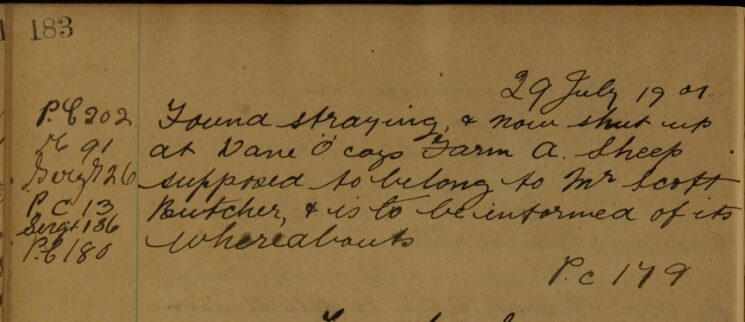 183
29 July 1901
P.C 202
Found straying, & now shut up
91
at Dane O'Coys Farm A. Sheep
Sergt 26
supposed to belong to Mr Scott
P C 13
Butcher, & is to be informed of its
Sergt 186
whereabouts
P.C 180
P.c 179